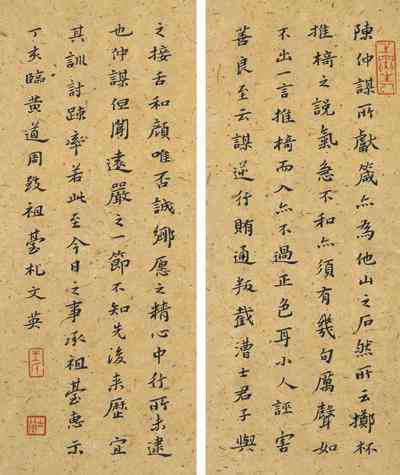 陳仲謀所獻箴亦為他山之石然所云擲杯
推椅之說氣急不和亦須有幾句厲聲如
不出一言推椅而入亦不過正色耳小人誣害
善良至云謀逆行賄通叛截漕士君子與
之接舌和顏唯否誠鄉愿之精心中行所未逮
也仲謀但聞遠嚴之一節不知先後來歷宜
其訓討疎率若此至今日之事承祖臺惠示
丁亥臨黃道周致祖臺札文英